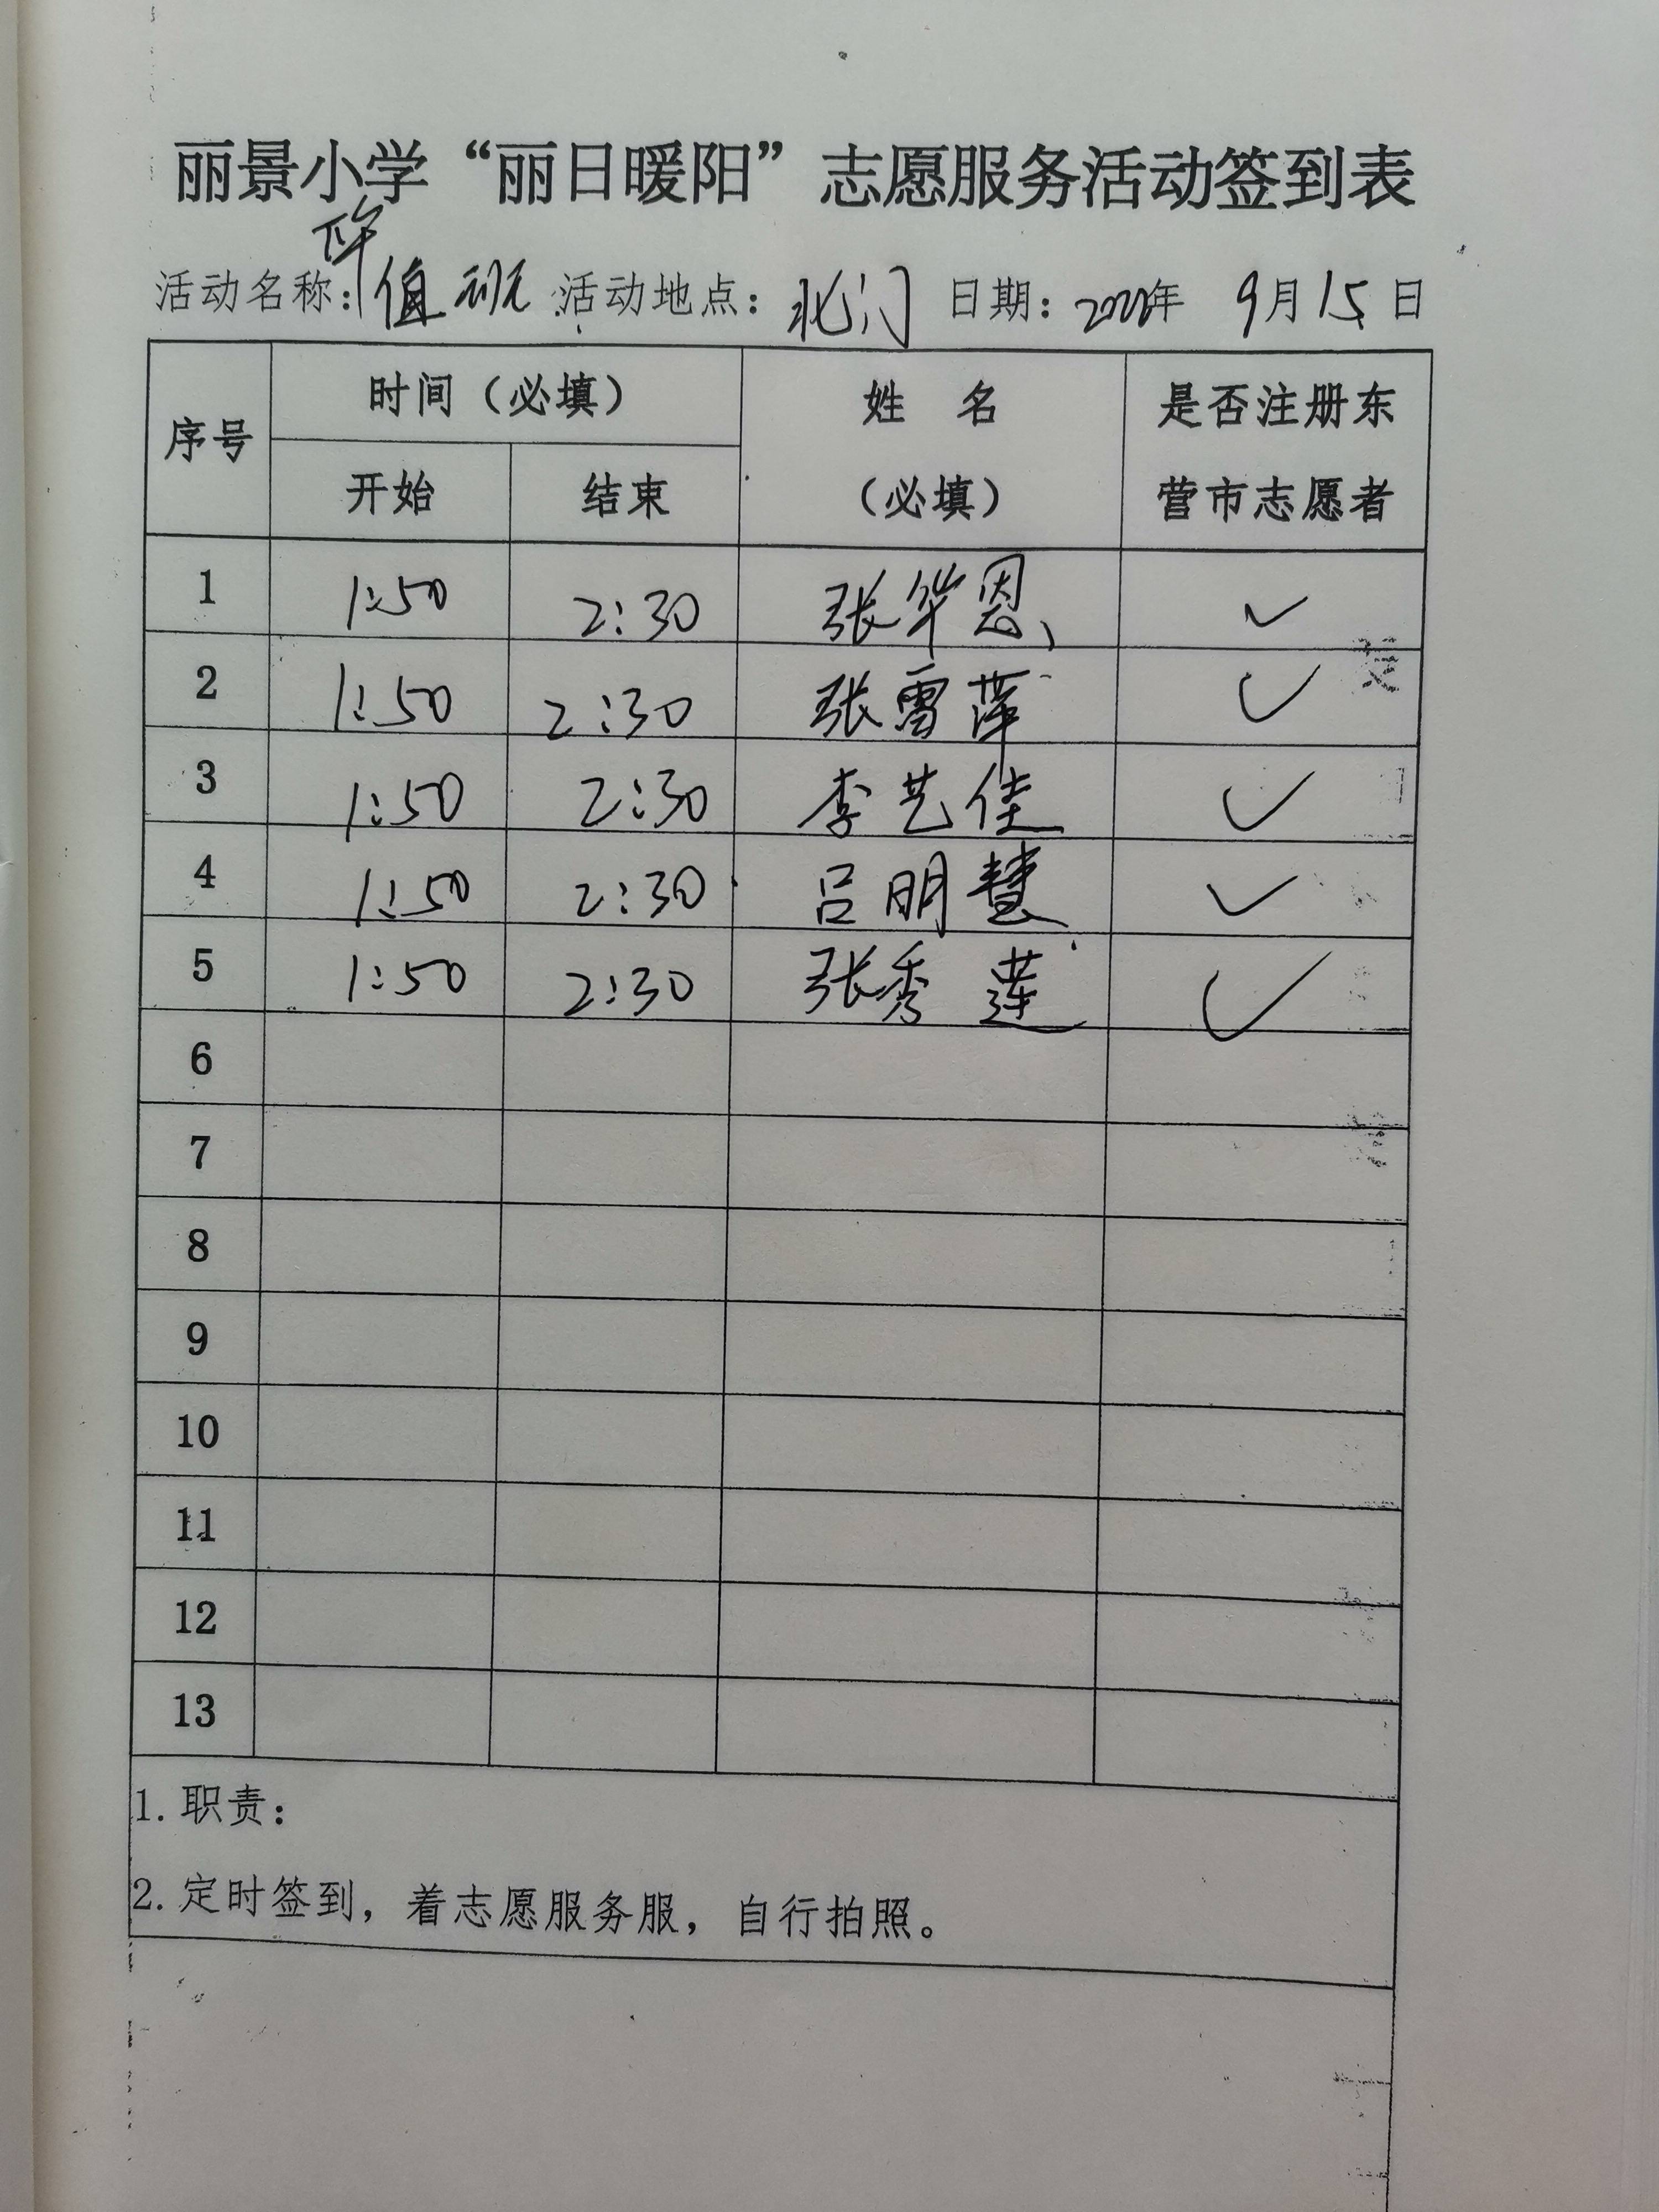 丽景小学“丽日暖阳”志愿服务活动签到表
下午
活动名称：值班 活动地点：北门 日期：2022年 9月15日
序号 时间（必填） 姓 名 是否注册东
开始 结束 （必填） 营市志愿者
1 1:50 2:30 张华恩 ✓
2 1:50 2:30 张雪萍 ✓
3 1:50 2:30 李艺佳 ✓
4 1:50 2:30 吕明慧 ✓
5 1:50 2:30 张秀莲 ✓
6
7
8
9
10
11
12
13
1. 职责：
2. 定时签到，着志愿服务服，自行拍照。